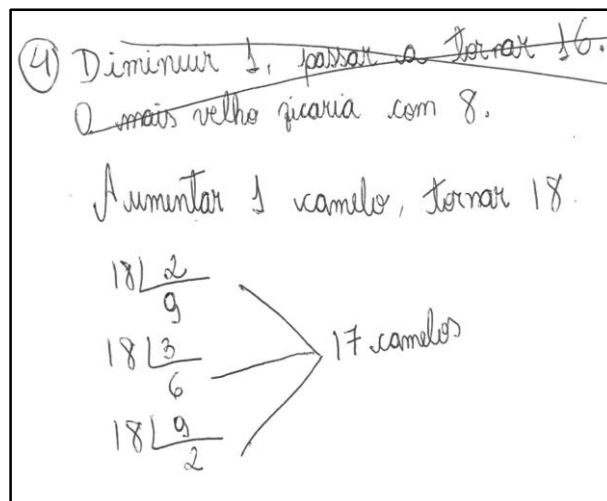 4 Diminuir 1, passar a tornar 16.
O mais velho ficaria com 8.
Aumentar 1 camelo, tornar 18.
18 2
9
18 3
6
17 camelos
18 9
2